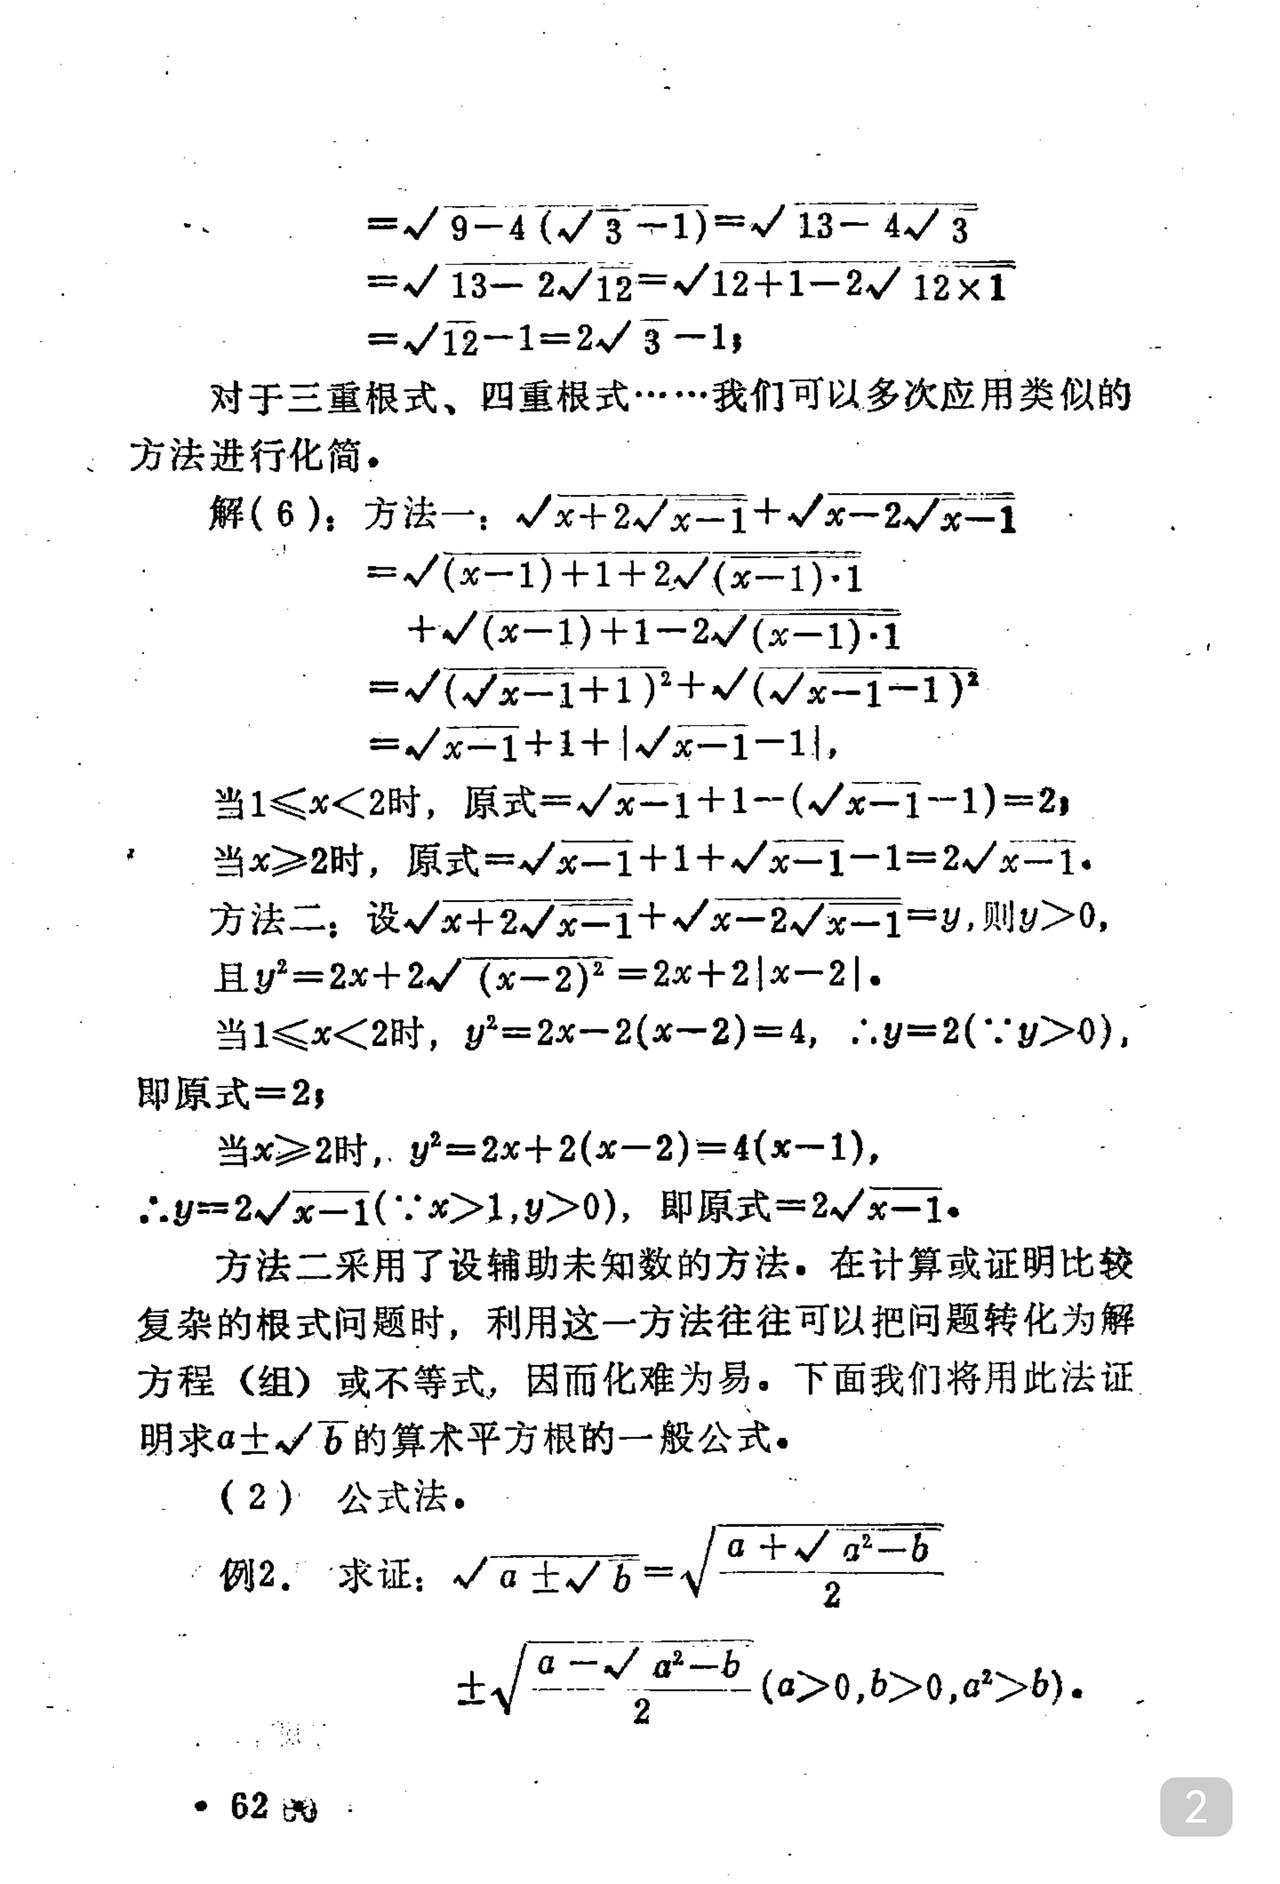 =√(9-4(√3-1))=√(13-4√3)
=√(13-2√12)=√(12+1-2√(12×1))
=√12-1=2√3-1;
对于三重根式、四重根式……我们可以多次应用类似的
方法进行化简。
解(6):方法一:√(x+2√(x-1))+√(x-2√(x-1))
=√((x-1)+1+2√((x-1)·1))
+√((x-1)+1-2√((x-1)·1))
=√((√(x-1)+1)²)+√((√(x-1)-1)²)
=√(x-1)+1+|√(x-1)-1|,
当1≤x<2时,原式=√(x-1)+1-(√(x-1)-1)=2;
当x≥2时,原式=√(x-1)+1+√(x-1)-1=2√(x-1)。
方法二:设√(x+2√(x-1))+√(x-2√(x-1))=y,则y>0,
且y²=2x+2√((x-2)²)=2x+2|x-2|。
当1≤x<2时,y²=2x-2(x-2)=4,∴y=2(∵y>0),
即原式=2;
当x≥2时,y²=2x+2(x-2)=4(x-1),
∴y=2√(x-1)(∵x>1,y>0),即原式=2√(x-1)。
方法二采用了设辅助未知数的方法。在计算或证明比较
复杂的根式问题时,利用这一方法往往可以把问题转化为解
方程(组)或不等式,因而化难为易。下面我们将用此法证
明求a±√b的算术平方根的一般公式。
(2) 公式法。
例2. 求证:√(a±√b)=√((a+√(a²-b))/2)
±√((a-√(a²-b))/2)(a>0,b>0,a²>b)。
• 62
2